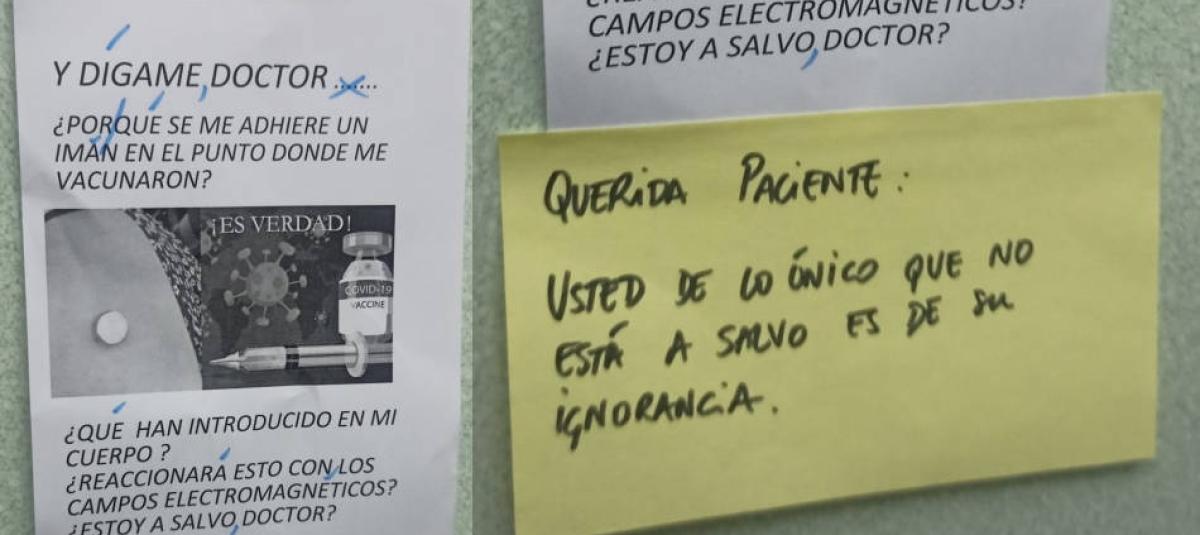 Y DÍGAME, DOCTOR .......
¿PORQUÉ SE ME ADHIERE UN
IMÁN EN EL PUNTO DONDE ME
VACUNARON?
¡ES VERDAD!
COVID-19
VACCINE
¿QUÉ HAN INTRODUCIDO EN MI
CUERPO ?
¿REACCIONARÁ ESTO CON LOS
CAMPOS ELECTROMAGNÉTICOS?
¿ESTOY A SALVO, DOCTOR?
CAMPOS ELECTROMAGNÉTICOS?
¿ESTOY A SALVO, DOCTOR?
QUERIDA PACIENTE:
USTED DE LO ÚNICO QUE NO
ESTÁ A SALVO ES DE SU
IGNORANCIA.